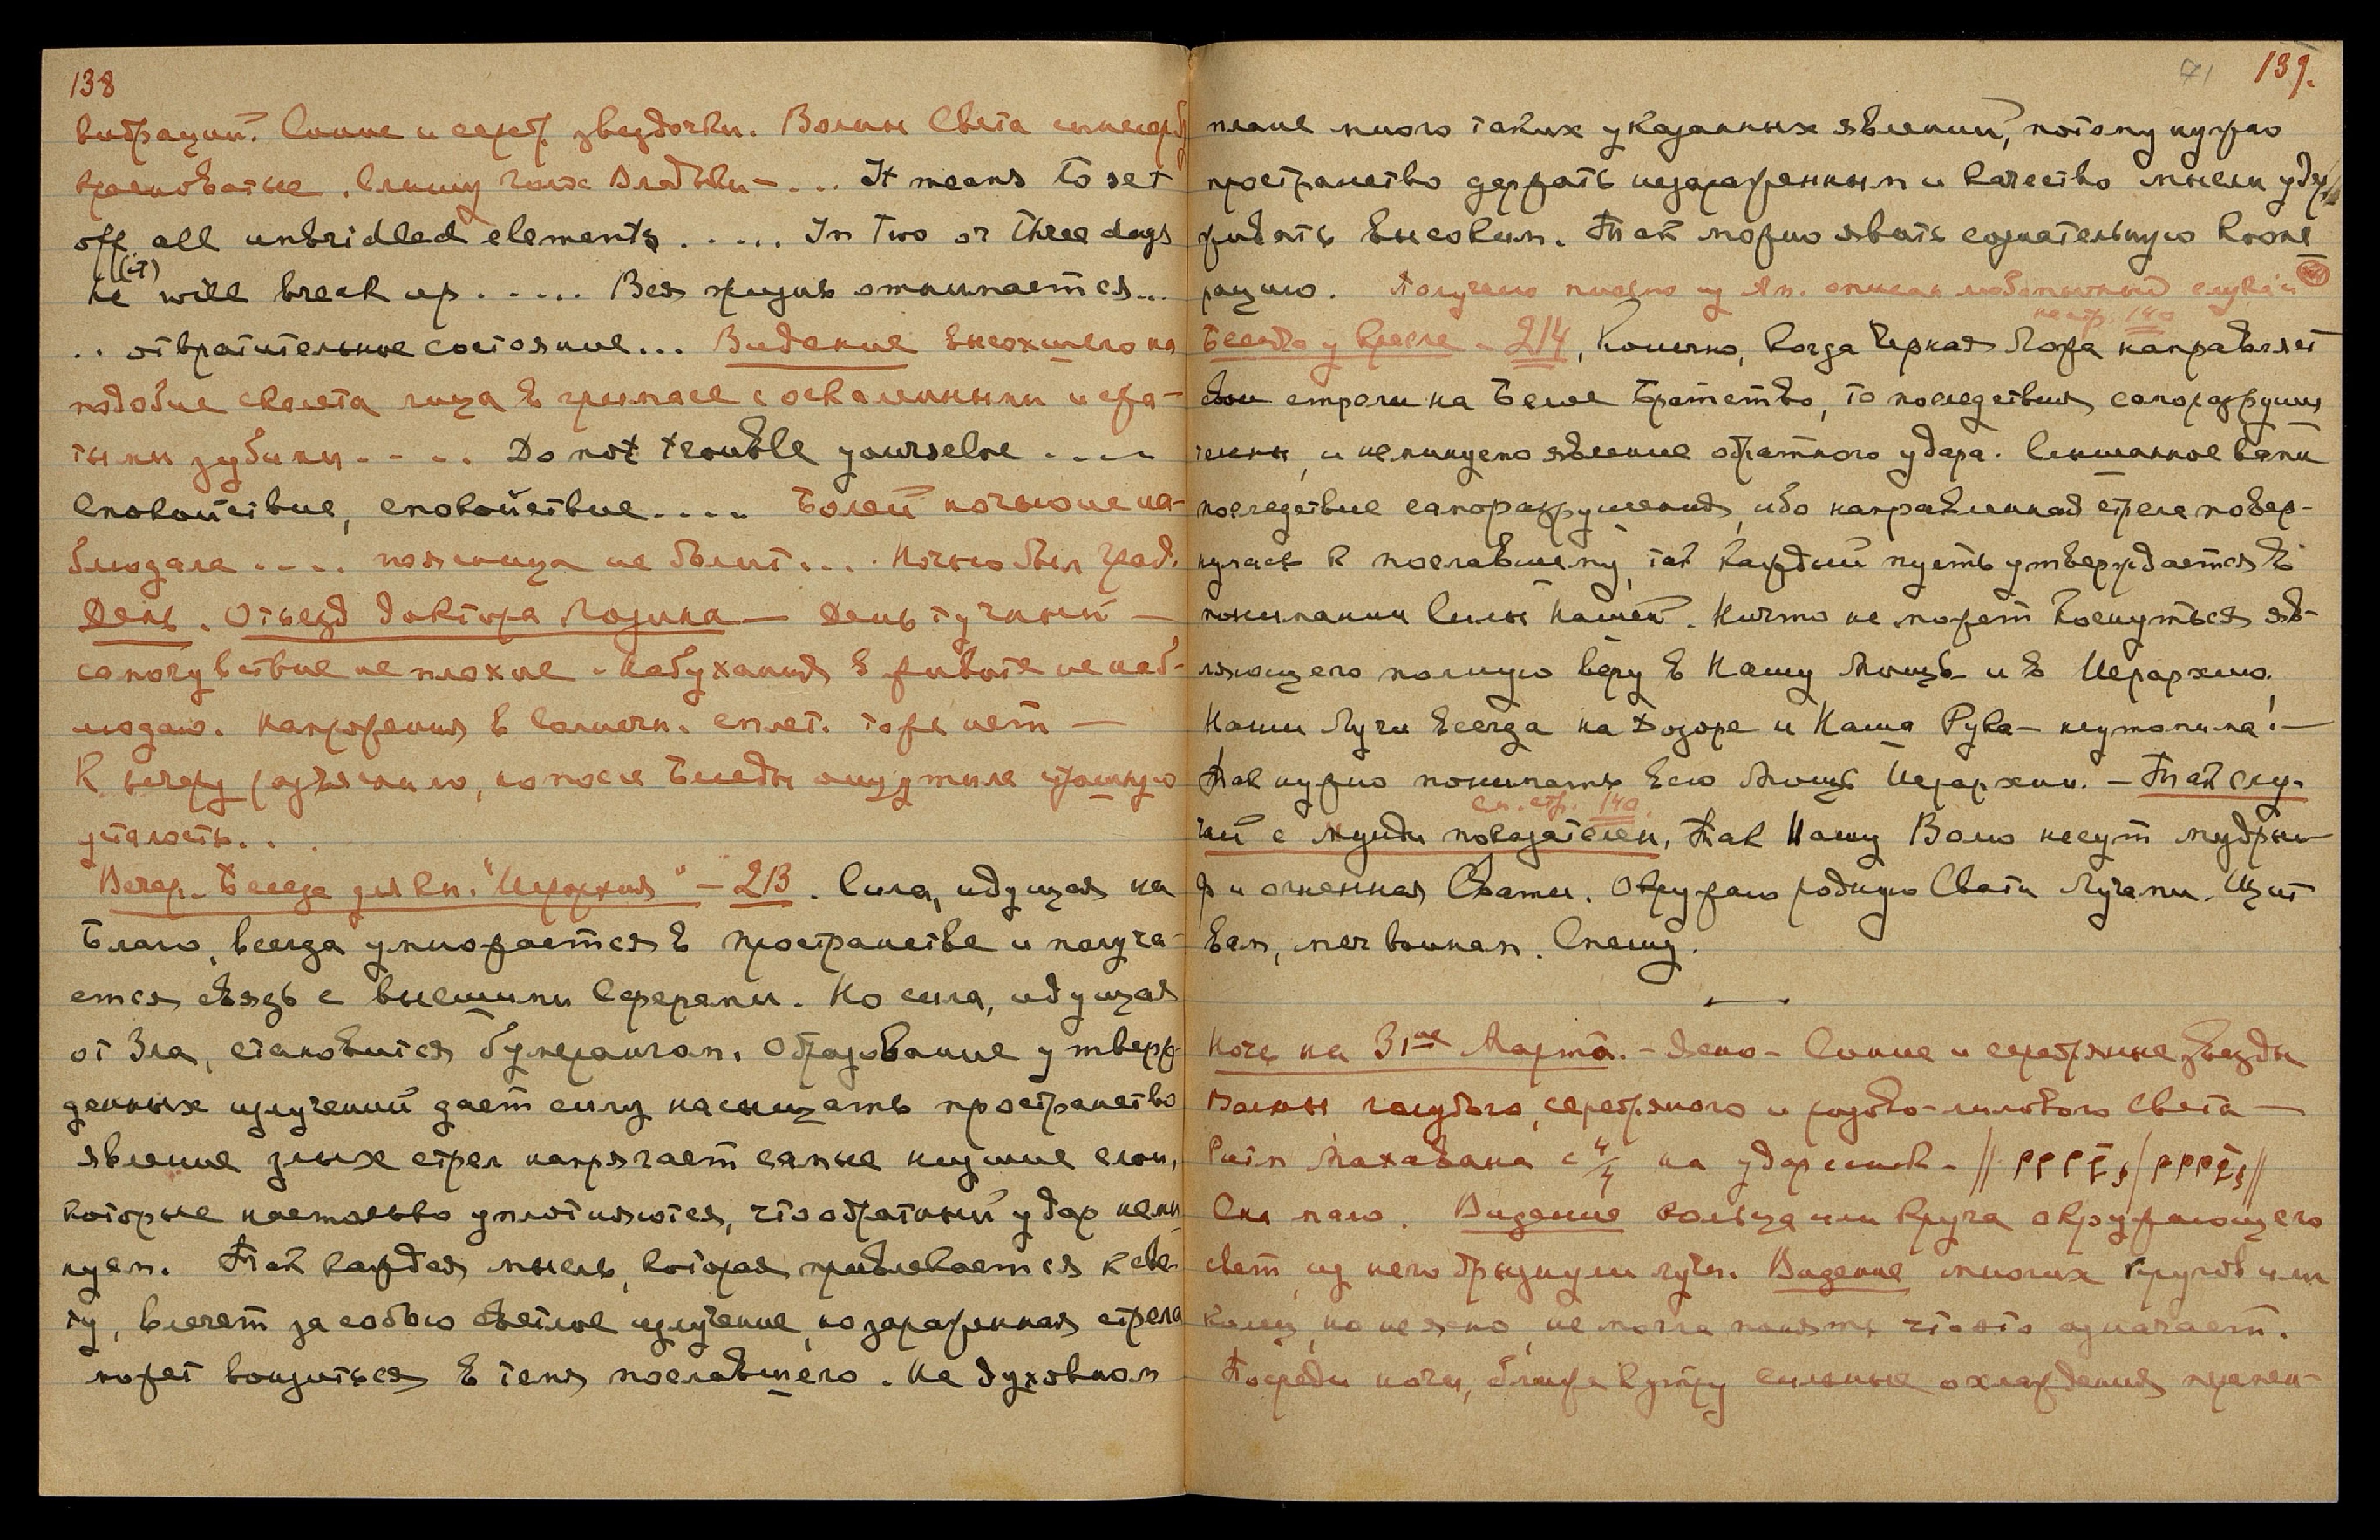 138
вибраций. Синие и сереб. звездочки. Волны Света
красноватые. Слышу голос Владыки — ... It means to set
off all unbridled elements ..... In Two or three days
he (it) will break up ..... Вся жизнь отнимается...
.. отвратительное состояние... Видение высохшего на
подобие скелета лица в гримасе с оскаленными и сжа-
тыми зубами ..... Do not trouble yourselve ....
Спокойствие, спокойствие .... Болей ночью не на-
блюдала .... поясница не болит... Ночью был град.
День. Отъезд доктора Лозина — День тучный —
самочувствие не плохое. Набухания в животе не наб-
людаю. Напряжения в солнечн. сплет. тоже нет —
К вечеру разъяснило, но после Беседы ощутила страшную
усталость...
Вечер. Беседа для кн. "Иерархия" — 213. Сила, идущая на
Благо, всегда умножается в пространстве и получа-
ется связь с высшими Сферами. Но сила, идущая
от Зла, становится бумерангом. Образование утверж-
денных излучений дает силу насыщать пространство
явление злых стрел напрягает самые низшие слои,
которые настолько уплотняются, что обратный удар неми-
нуем. Так каждая мысль, которая привлекается к све-
ту, влечет за собою светлое излучение, но зараженная стрела
может вонзиться в темя пославшего. На духовном
71 139.
плане много таких указанных явлений, потому нужно
пространство держать незараженным и качество мысли удер/
живать высоким. Так можно явить сознательную коопе
рацию. Получено письмо из Ам. описан любопытный случай
на стр. 140
Беседа у кресла — 214, Конечно, когда Черная Ложа направляет
свои стрелы на Белое Братство, то последствия саморазруши
тельны, и неминуемо явление обратного удара. Слышанное вами
последствие саморазрушения, ибо направленная стрела повер-
нулась к пославшему, так каждый пусть утверждается в
понимании Силы Нашей. Ничто не может коснуться яв-
ляющего полную веру в Нашу Мощь и в Иерархию.
Наши Лучи всегда на Дозоре и Наша Рука — неутомима! —
Так нужно понимать всю Мощь Иерархии. — Так слу-
см. стр. 140.
чай с Мунди показателен, Так Нашу Волю несут мудрый
Ф и огненная Свати. Окружаю родную Свати Лучами. Щит
вам, меч воинам. Спешу.
Ночь на 31ое Марта. — Ясно — Синие и серебряные звезды
Волны голубого, серебряного и розово-лилового света —
Ритм Махавана с 4/4 на
Сна мало. Видение кольца или круга окружающего
свет, из него брызнули лучи. Видение многих кругов или
колец, но не ясно, не могла понять что это означает.
Посреди ночи, ближе к утру сильные охлаждения перемен-